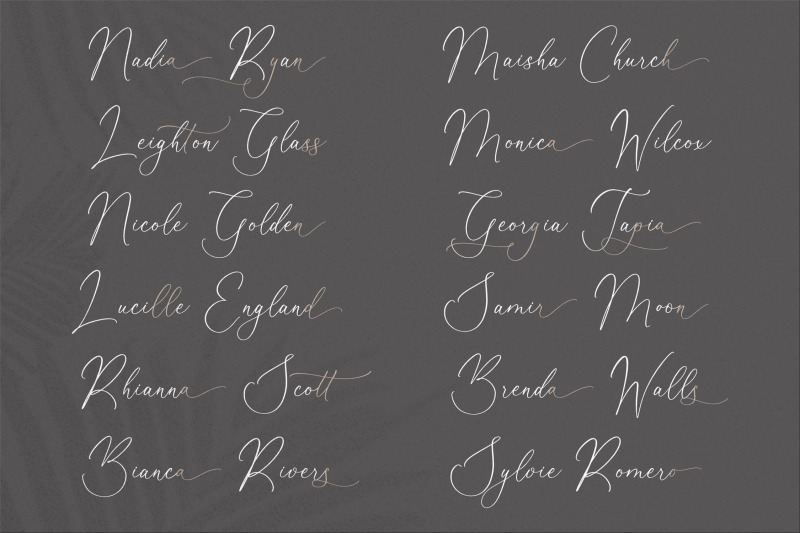 Nadia Ryan
Leighton Glass
Nicole Golden
Lucille England
Rhianna Scott
Bianca Rivers
Maisha Church
Monica Wilcox
Georgia Tapia
Samir Moon
Brenda Walls
Sylvie Romero